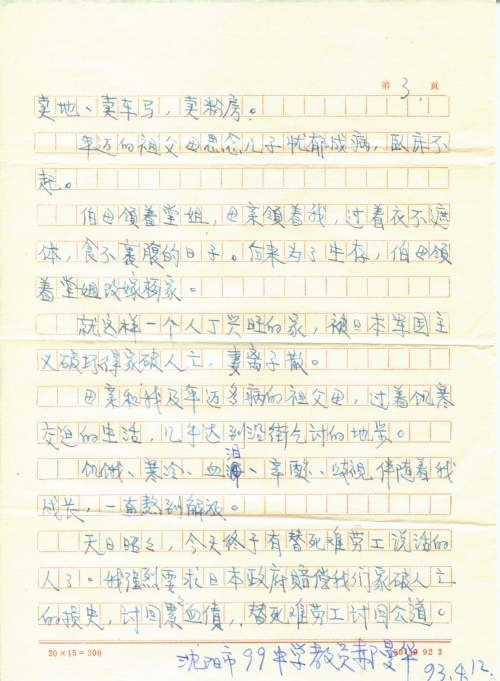 第 3 頁
卖地、卖车马,卖粉房。
年迈的祖父母思念儿子忧郁成病,卧床不
起。
伯母领着堂姐,母亲领着我,过着衣不遮
体,食不裹腹的日子。后来为了生存,伯母领
着堂姐改嫁杨家。
就这样一个人丁兴旺的家,被日本军国主
义破坏得家破人亡,妻离子散。
母亲和我及年迈多病的祖父母,过着饥寒
交迫的生活,几乎达到沿街乞讨的地步。
饥饿、寒冷、血泪、辛酸、歧视伴随着我
成长,一直熬到解放。
天日昭昭,今天终于有替死难劳工说话的
人了。我强烈要求日本政府赔偿我们家破人亡
的损失,讨回累累血债,替死难劳工讨回公道。
20×15=300 92 3
沈阳市99中学教员郝曼华
93.4.12.